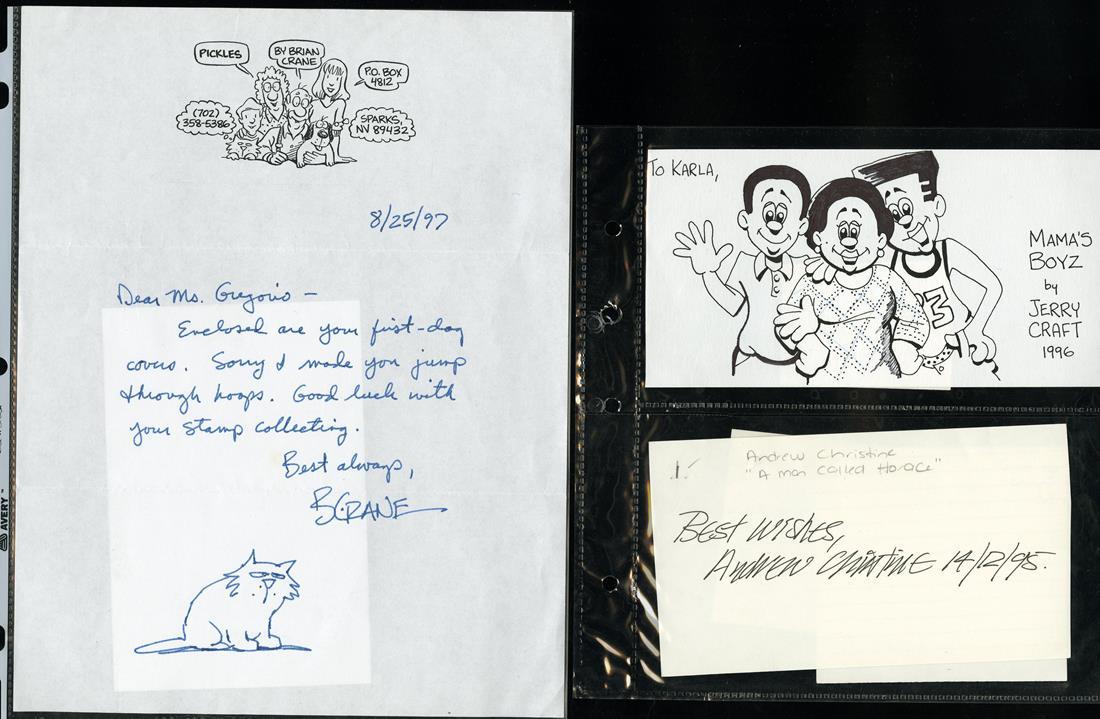 PICKLES
BY BRIAN
CRANE
P.O. BOX
4812
(702)
358-5386
SPARKS,
NV 89432
8/25/97
Dear Ms. Gregorio –
Enclosed are your first-day
covers. Sorry I made you jump
through hoops. Good luck with
your stamp collecting.
Best always,
B.CRANE
TO KARLA,
MAMA'S
BOYZ
by
JERRY
CRAFT
1996
3
Andrew Christine
"A man called Horace"
BEST WISHES,
ANDREW CHRISTINE 14/12/95.
AVERY